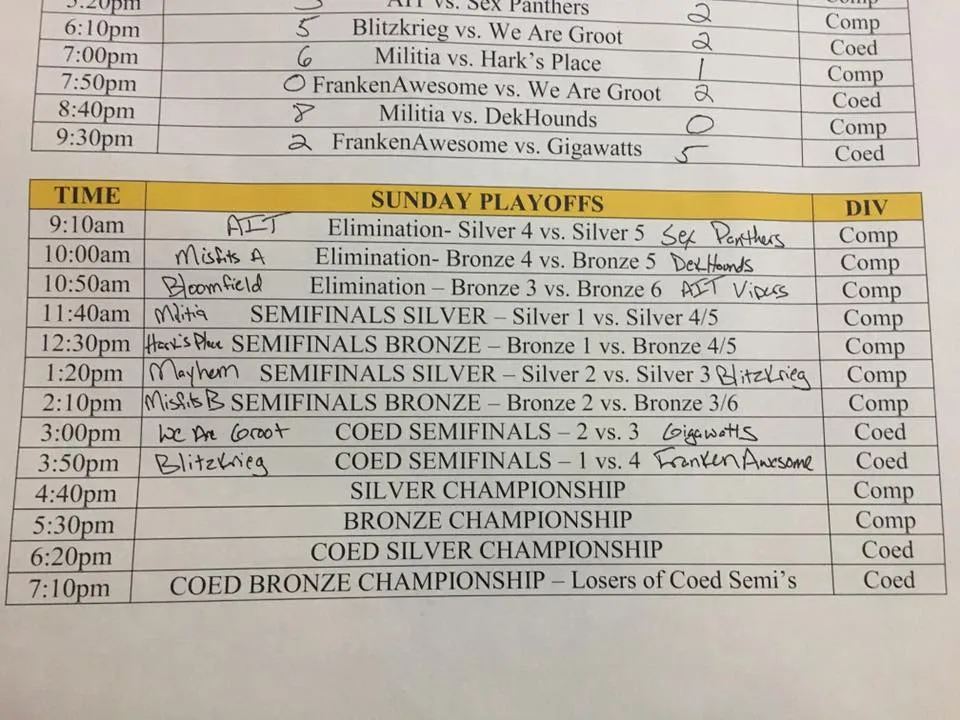 5:20pm 5 AIT vs. Sex Panthers 2 Comp
6:10pm 5 Blitzkrieg vs. We Are Groot 2 Coed
7:00pm 6 Militia vs. Hark's Place 1 Comp
7:50pm 0 FrankenAwesome vs. We Are Groot 2 Coed
8:40pm 8 Militia vs. DekHounds 0 Comp
9:30pm 2 FrankenAwesome vs. Gigawatts 5 Coed
TIME SUNDAY PLAYOFFS DIV
9:10am AIT Elimination- Silver 4 vs. Silver 5 Sex Panthers Comp
10:00am Misfits A Elimination- Bronze 4 vs. Bronze 5 DekHounds Comp
10:50am Bloomfield Elimination – Bronze 3 vs. Bronze 6 AIT Vipers Comp
11:40am Militia SEMIFINALS SILVER – Silver 1 vs. Silver 4/5 Comp
12:30pm Hark's Place SEMIFINALS BRONZE – Bronze 1 vs. Bronze 4/5 Comp
1:20pm Mayhem SEMIFINALS SILVER – Silver 2 vs. Silver 3 Blitzkrieg Comp
2:10pm Misfits B SEMIFINALS BRONZE – Bronze 2 vs. Bronze 3/6 Comp
3:00pm We Are Groot COED SEMIFINALS – 2 vs. 3 Gigawatts Coed
3:50pm Blitzkrieg COED SEMIFINALS – 1 vs. 4 FrankenAwesome Coed
4:40pm SILVER CHAMPIONSHIP Comp
5:30pm BRONZE CHAMPIONSHIP Comp
6:20pm COED SILVER CHAMPIONSHIP Coed
7:10pm COED BRONZE CHAMPIONSHIP – Losers of Coed Semi's Coed